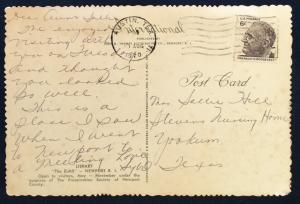 Dear Aunt Sallie
We enjoyed
Visiting with
you on Tuesday
and thought
you looked
so well.
This is a
place I saw
when I went
to Newport to
a Meeting
AUSTIN, TEX
PM
International
NEWPORT, R. I.
U.S. POSTAGE
6¢
FRANKLIN D. ROOSEVELT
Post Card
Mrs Sallie Hill
Stevens Nursing Home
Yoakum
Texas
LIBRARY
"The Elms" — NEWPORT R. I.
Open to visitors, May - November under the
auspices of The Preservation Society of Newport
County.